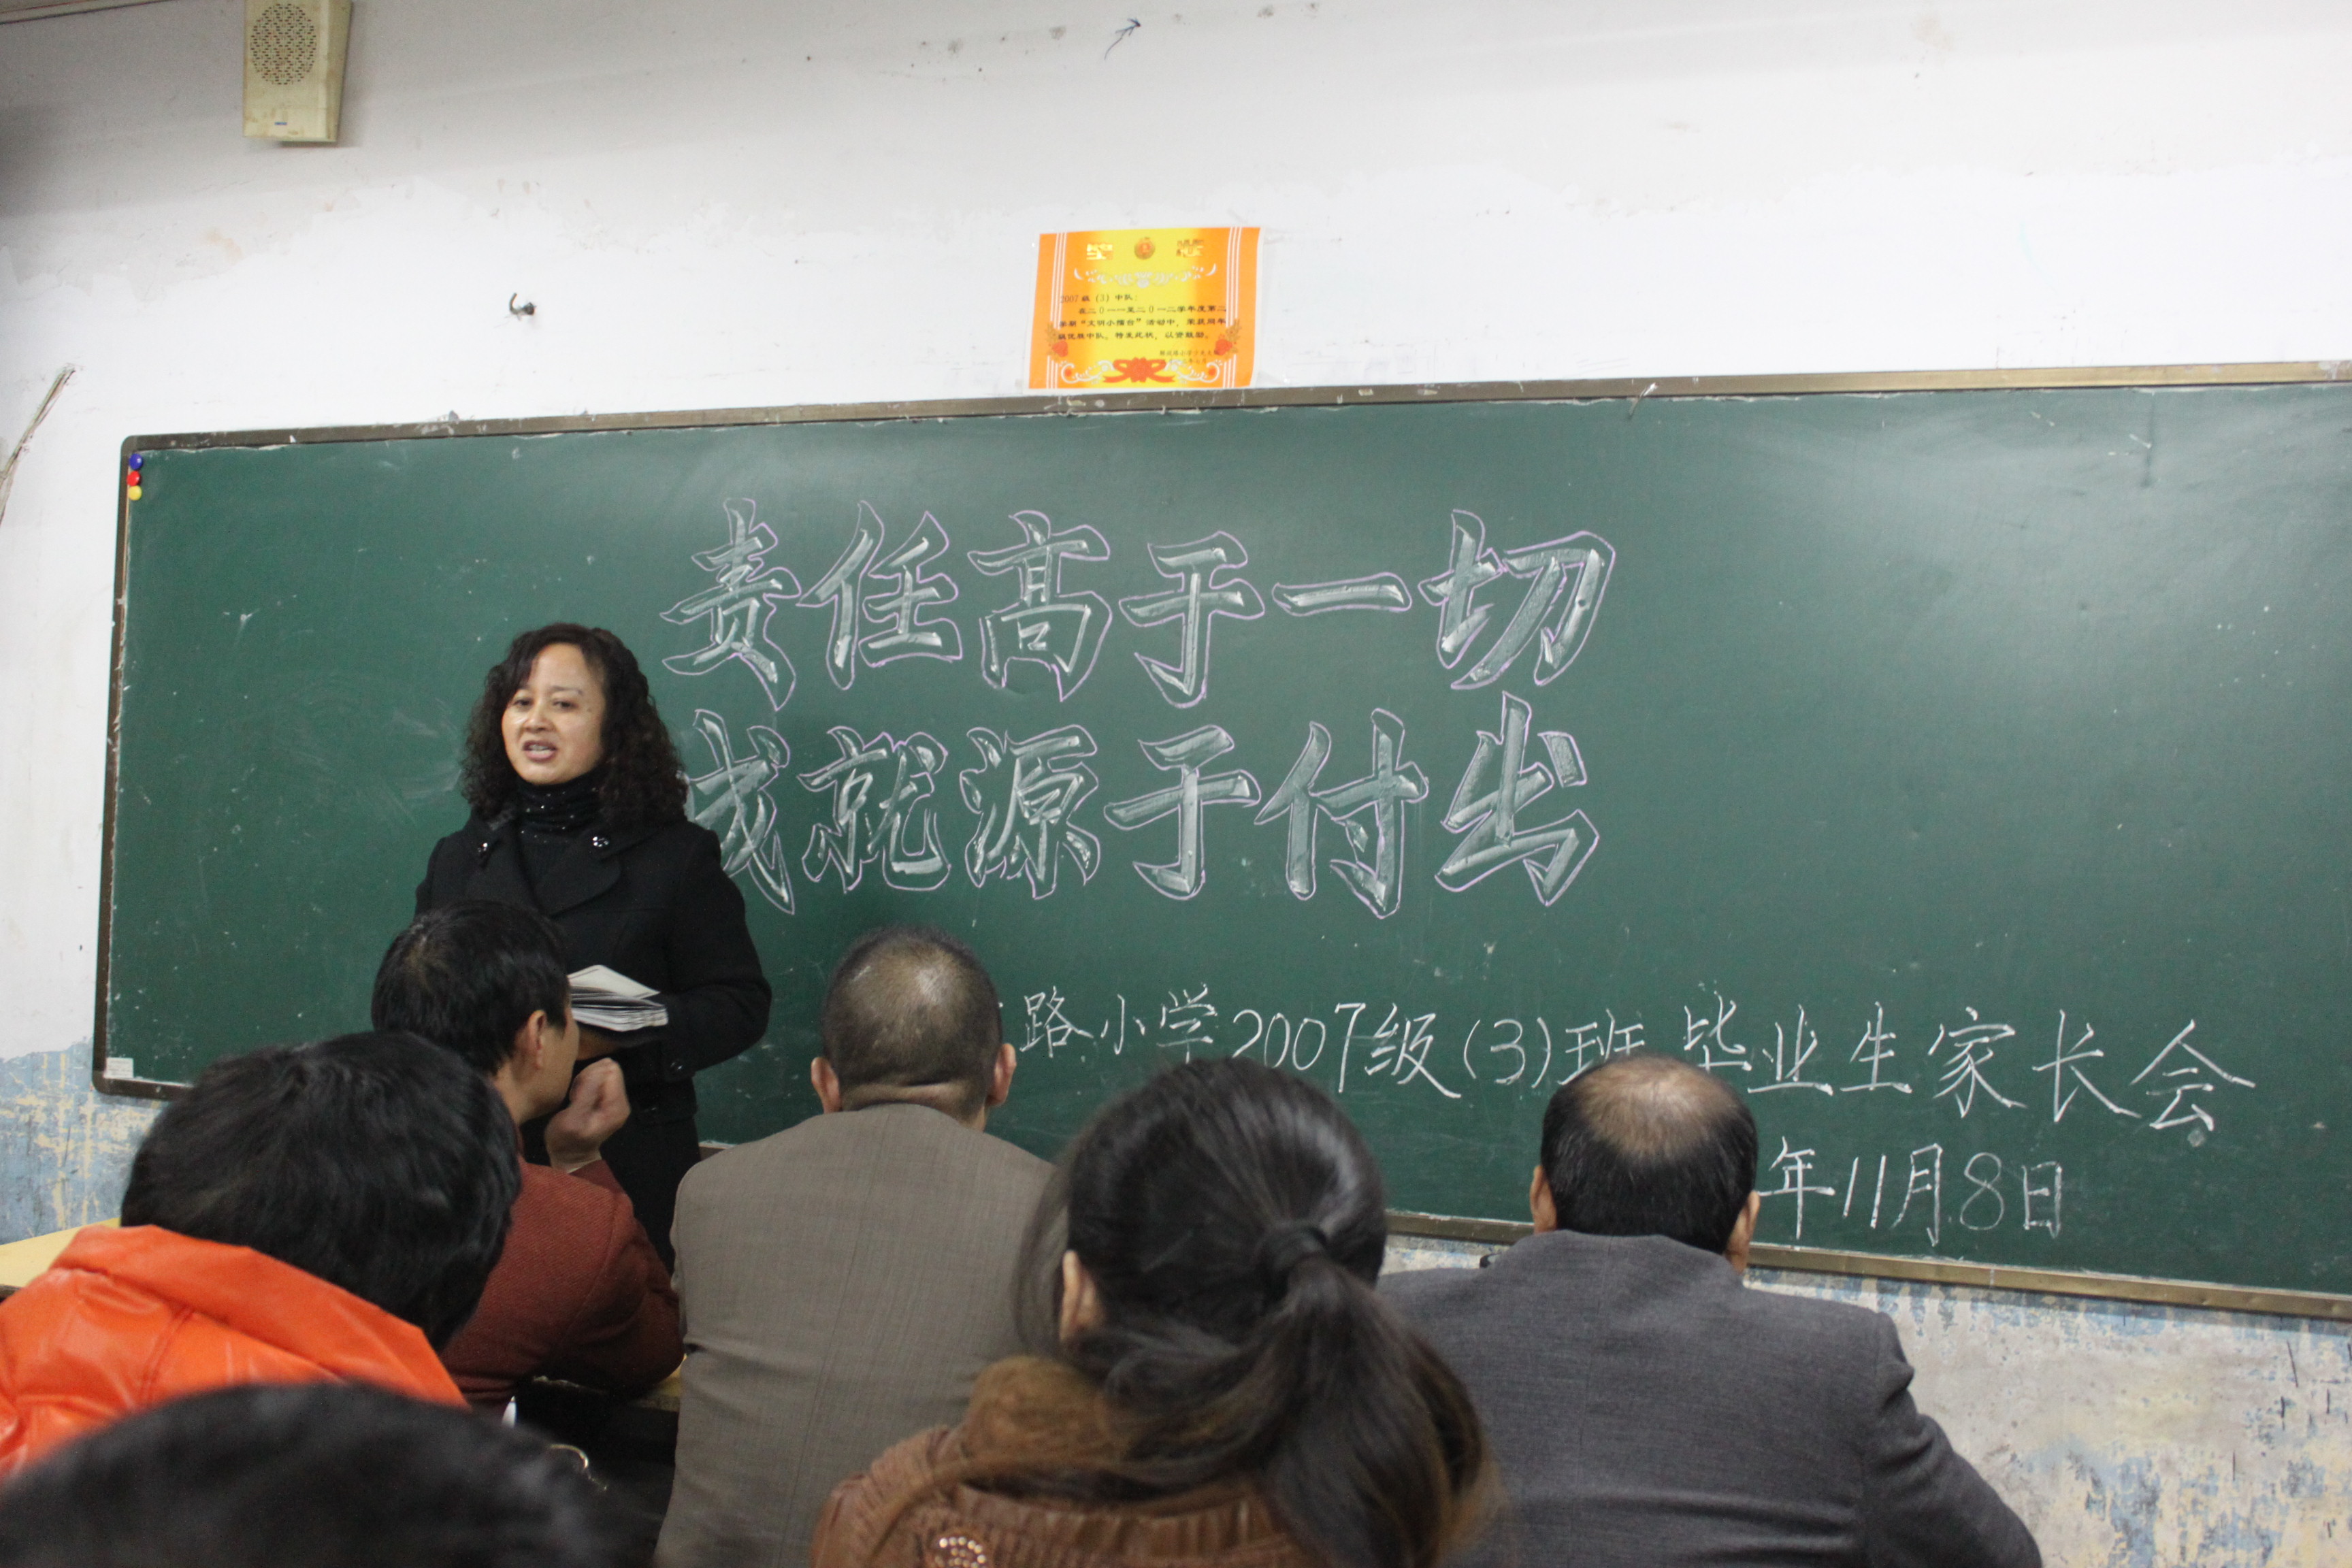 2007级(3)中队:
在二0一一至二0一二学年度第二
学期“文明小擂台”活动中,荣获同年
级优胜中队,特发此状,以资鼓励。
责任高于一切
成就源于付出
路小学2007级(3)班毕业生家长会
年11月8日